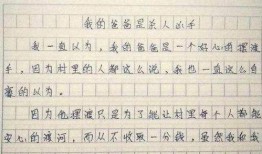 我的爸爸是杀人凶手
我一直以为，我的爸爸是一个好心的摆渡
手，因为村里的人都这么说，我也一直这么自
豪的以为。
因为他摆渡只是为了能让村里每个人都能
安心的渡河，而从不收取一分钱，虽然我和我